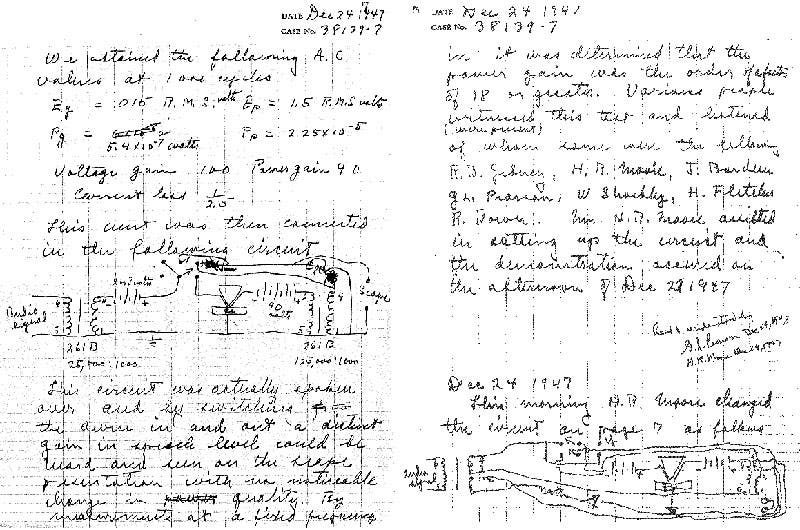 DATE Dec 24 1947
CASE No. 38139-7
We attained the following A.C.
values at 1000 cycles
Eg = .015 R.M.S. volts Ep = 1.5 R.M.S volts
Pg = 5.4 x 10⁻⁷ watts Pp = 2.25 x 10⁻⁵
Voltage gain 100 Power gain 40
Current loss 1/2.5
This unit was then connected
in the following circuit
Audio signal
Scope
261B
25,000:1000
261B
125,000:1000
This circuit was actually spoken
over and by switching
the device in and out a distinct
gain in speech level could be
heard and seen on the scope
presentation with no noticeable
change in quality. By
measurements at a fixed frequency
DATE Dec 24 1947
CASE No. 38139-7
in it was determined that the
power gain was the order of a factor
of 18 or greater. Various people
witnessed this test and listened
(were present)
of whom some were the following
R. B. Gibney, H. R. Moore, J. Bardeen
G. L. Pearson, W. Shockley, H. Fletcher
R. Bown. Mr. H. R. Moore assisted
in setting up the circuit and
the demonstration occured on
the afternoon of Dec 23 1947
Read & understood by
G. L. Pearson Dec 24, 1947
H. R. Moore Dec 24, 1947
Dec 24 1947
This morning H. R. Moore changed
the circuit on page 7 as follows
Audio signal